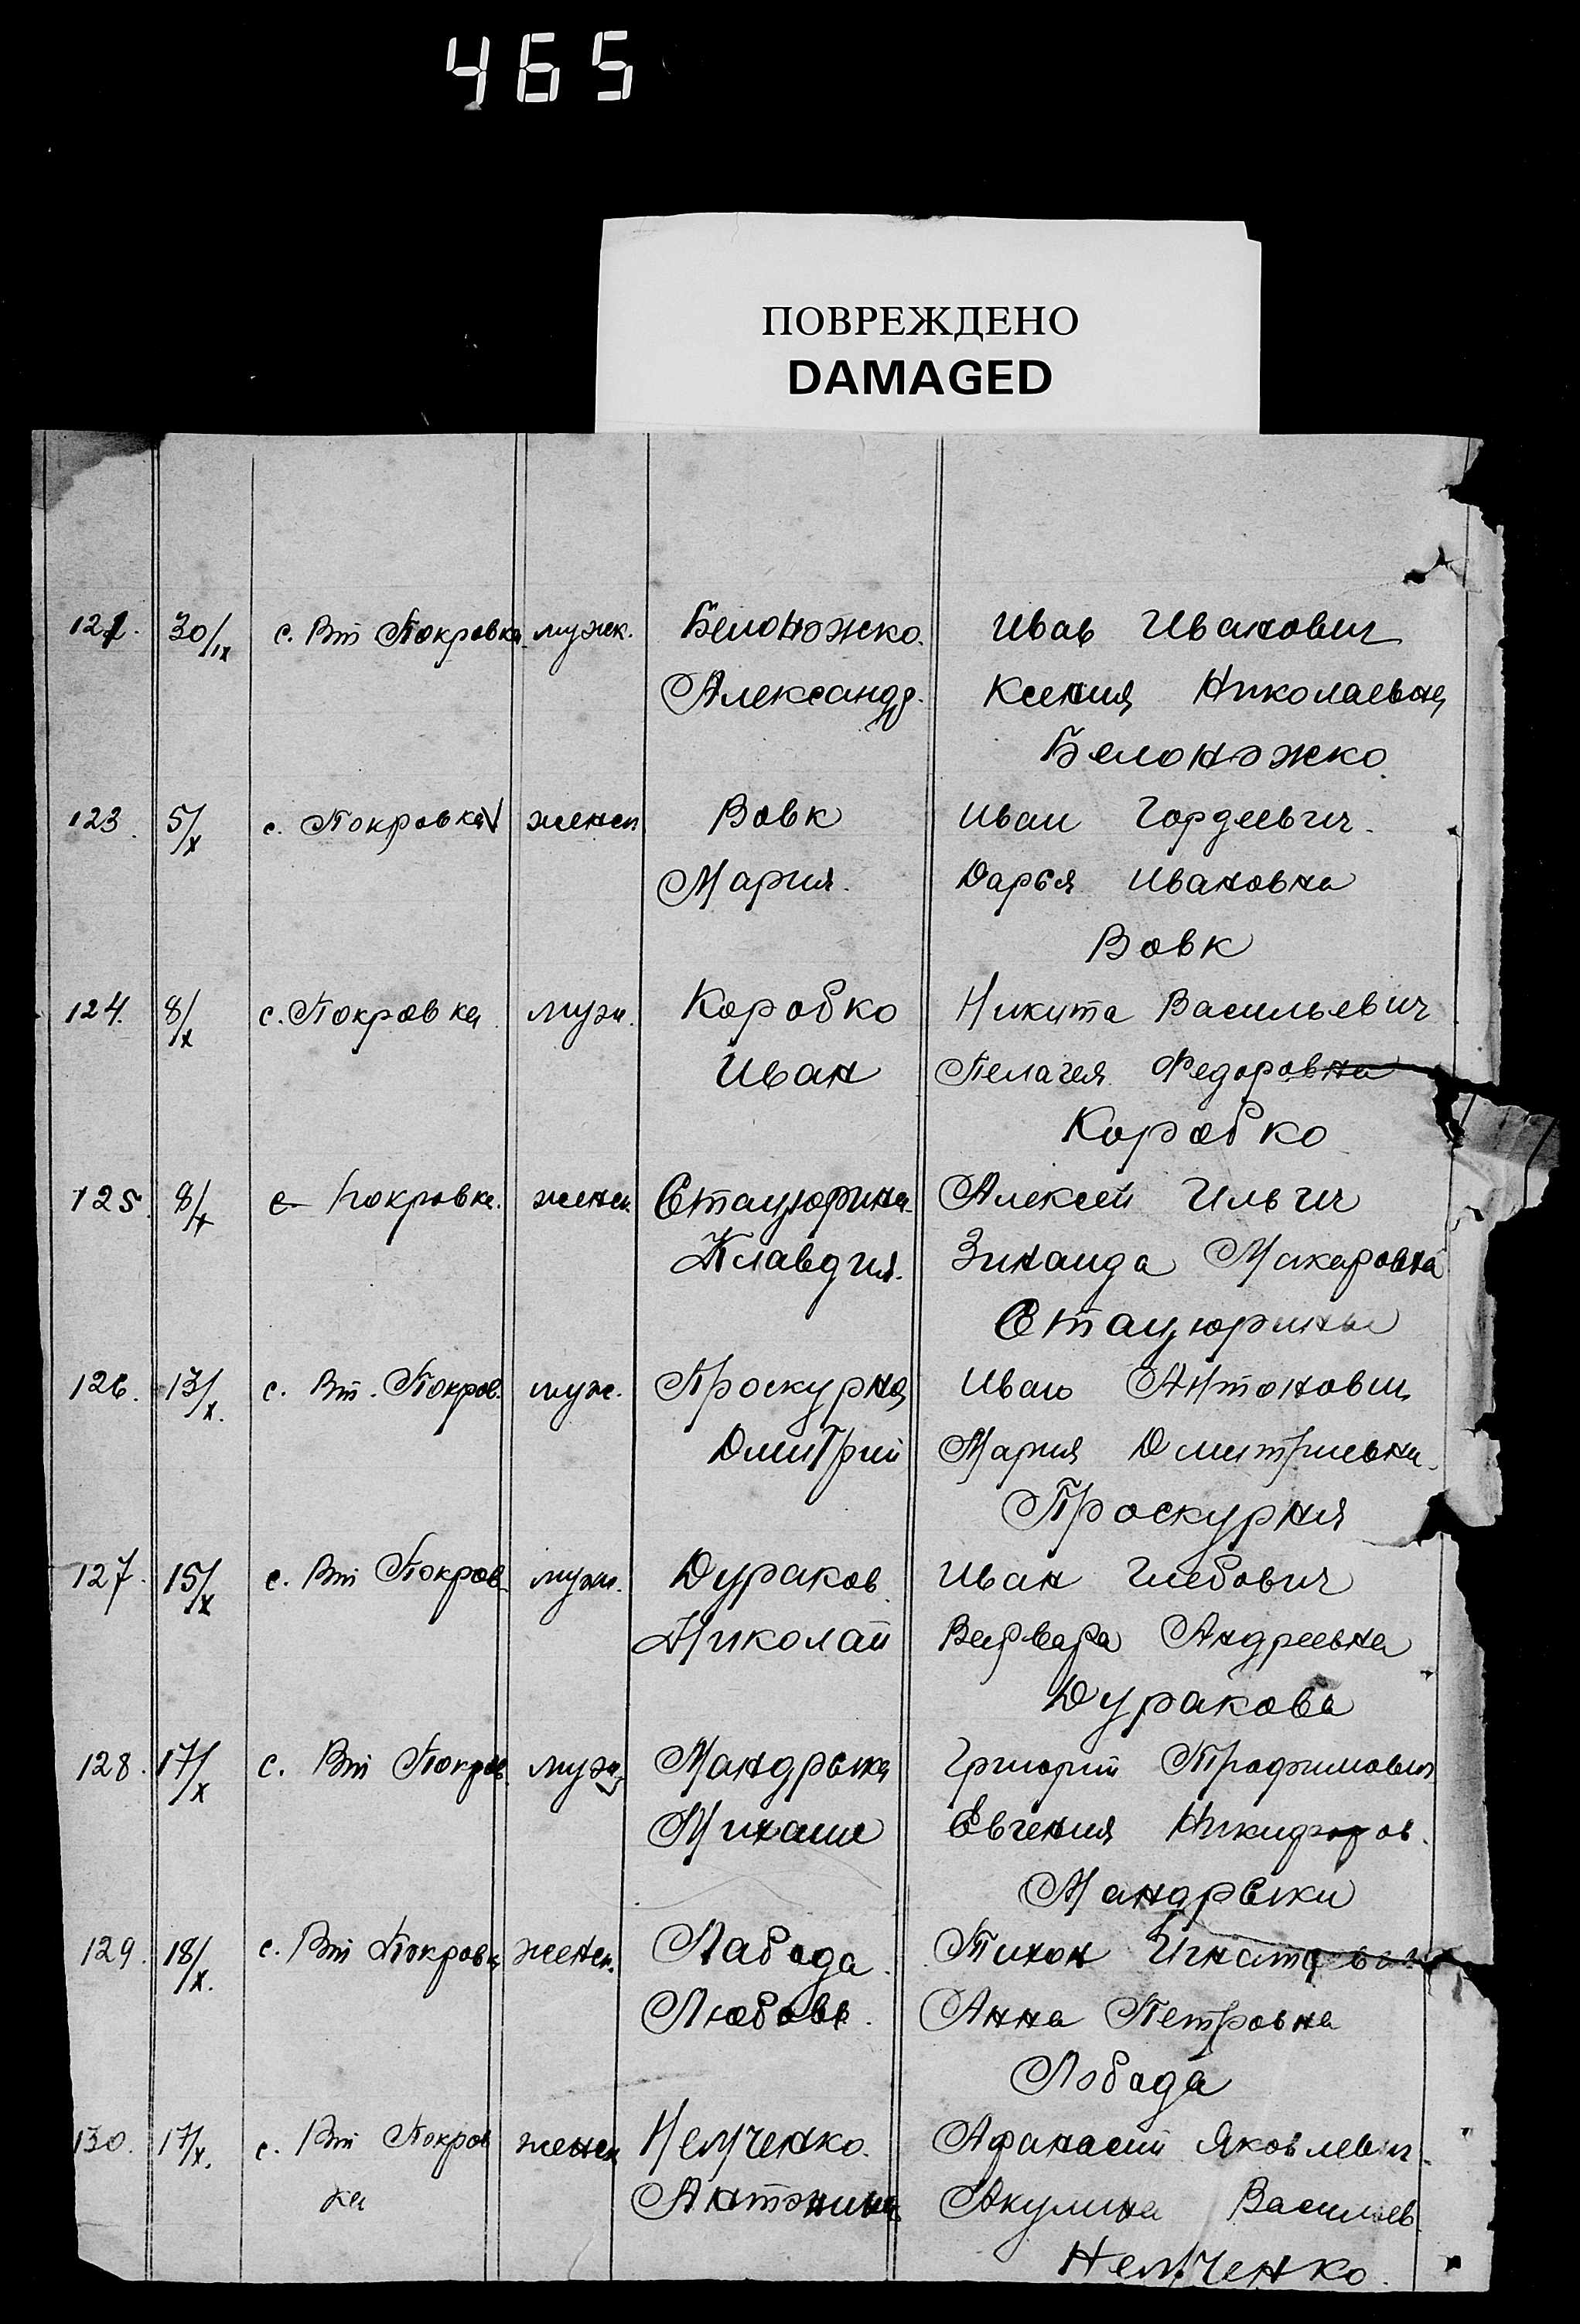 465
ПОВРЕЖДЕНО
DAMAGED
30/IX с. Вт Покровка мужк. Белоножко. Иван Иванович
Александр. Ксения Николаевна
Белоножко
123 5/X с. Покровка женск Вовк Иван Гордеевич.
Мария. Дарья Ивановна
Вовк
124. 8/X с. Покровка муж. Коробко Никита Васильевич
Иван Пелагея Федоровна
Коробко
125. 8/X с Покровка. женск. Стацюрина Алексей Ильич
Клавдия. Зинаида Макаровна
Стацюрины
126. 13/X. с. Вт. Покров. муж. Проскурня Иван Антонович
Дмитрий Мария Дмитриевна.
Проскурня
127. 15/X с. Вт Покров муж. Дураков Иван Глебович
Николай Варвара Андреевна
Дураковы
128. 17/X с. Вт Покров. муж. Мандрыка Григорий Трофимович
Михаил Евгения Никифоров.
Мандрыки
129. 18/X. с. Вт Покровка женск. Лабода. Тихон
Любовь. Анна Петровна
Лобода
130. 17/X. с. Вт Покров женск Немченко. Афанасий Яковлевич.
ка Антонина Акулина Васильев.
Немченко.